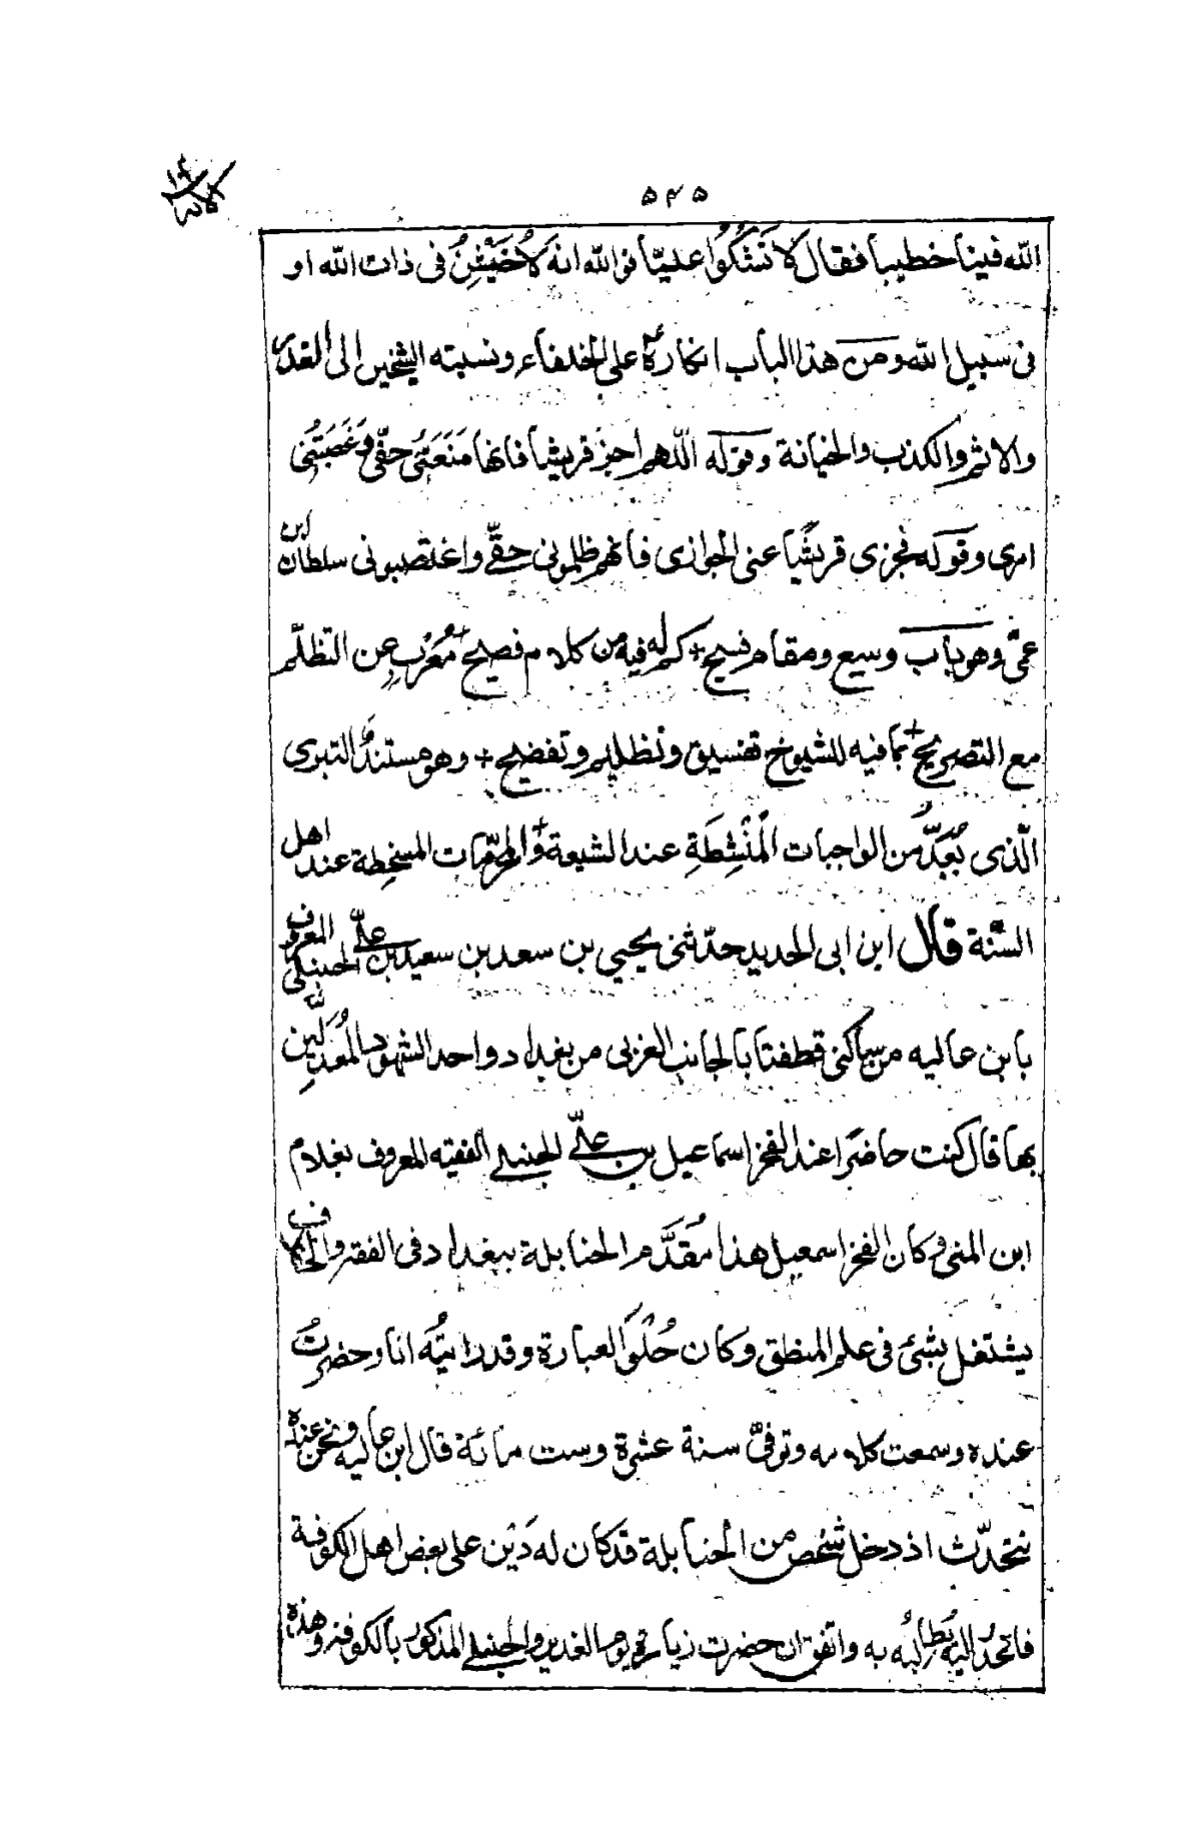 ۵۴۵
الله فينا خطيبا فقال لا تشكوا عليّا فو الله انه لاُخَيْشِنٌ فى ذات الله او
فى سبيل الله ومن هذا الباب انكاره على الخلفاء ونسبته الشيخين الى الغدر
والاثم والكذب والخيانة وقوله اللّهم اجز قريشا فانها مَنَعَتْنى حقّى وغَصَبَتْنى
امرى وقوله فجزى قريشًا عنى الجوازى فانهم ظلمونى حقّى واغتصبونى سلطان ابن
عمّى وهو باب وسيع ومقام فسيح + كم له فيه من كلام فصيح + مُعْرِب عن التظلّم
مع التصريح + بما فيه للشيوخ تفسيق وتظليم وتفضيح + وهو مستند التبرى
الّذى يُعَدُّ من الواجبات المُنْشِطَةِ عند الشيعة + والمحرّمات المسخطة عند اهل
السّنة قال ابن ابى الحديد حدّثنى يحيى بن سعد بن سعيد بن علىّ الحنبلى المعروف
بابن عاليه من ساكنى قطفتا بالجانب الغربى من بغداد واحد الشهود المُعدَّلين
بها قال كنت حاضرًا عند الفخر اسماعيل بن علىّ الحنبلى الفقيه المعروف بغلام
ابن المنى وكان الفخر اسمعيل هذا مُقَدَّم الحنابلة ببغداد فى الفقه والخلاف
يشتغل بشئ فى علم المنطق وكان حُلْوَ العبارة وقد رايتُه انا وحضرتُ
عنده وسمعت كلامه وتوفىّ سنة عشرة وست مائة قال ابن عاليه ونحن عنده
نتحدّث اذ دخل شخص من الحنابلة قد كان له دَيْن على بعض اهل الكوفة
فانحدر اليه يُطالبُه به واتفق ان حضرت زيارة يوم الغدير والحنبلى المذكور بالكوفه وهذه